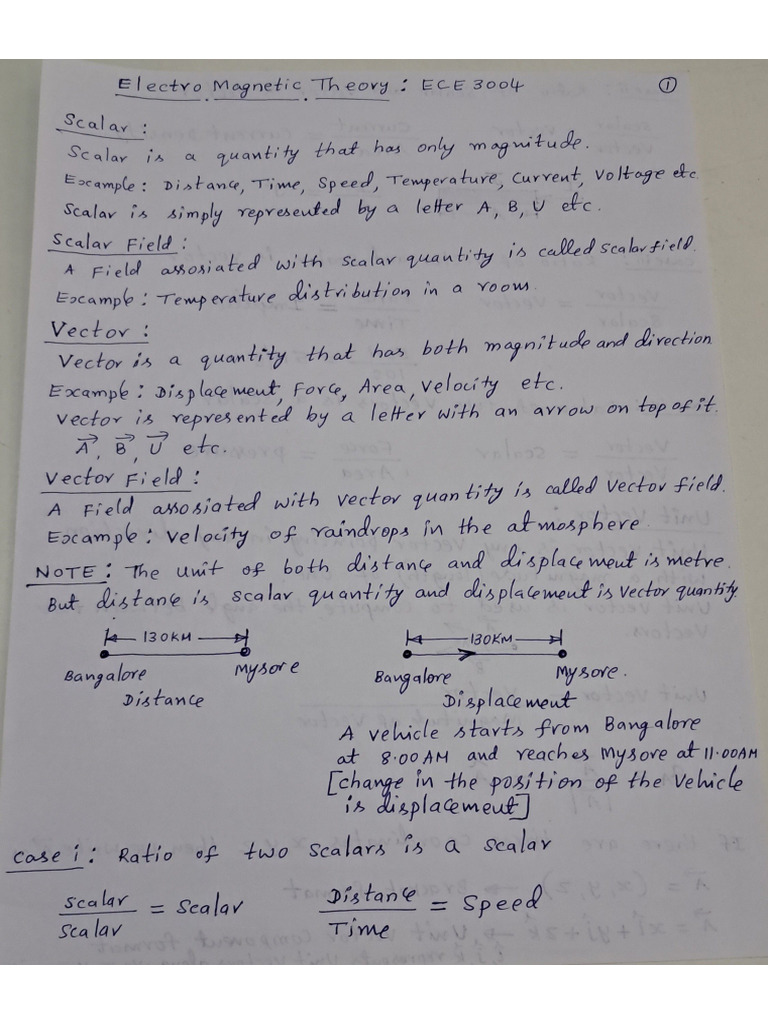 Electro Magnetic Theory : ECE 3004 ①
Scalar :
Scalar is a quantity that has only magnitude.
Example : Distance, Time, Speed, Temperature, Current, Voltage etc.
Scalar is simply represented by a letter A, B, U etc.
Scalar Field :
A Field assosiated with scalar quantity is called scalar field.
Example : Temperature distribution in a room.
Vector :
Vector is a quantity that has both magnitude and direction
Example : Displacement, Force, Area, Velocity etc.
Vector is represented by a letter with an arrow on top of it.
A⃗, B⃗, U⃗ etc.
Vector Field :
A Field assosiated with vector quantity is called vector field.
Example : Velocity of raindrops in the atmosphere.
NOTE : The unit of both distance and displacement is metre.
But distance is scalar quantity and displacement is vector quantity.
130KM 130KM
Bangalore Mysore Bangalore Mysore.
Distance Displacement
A vehicle starts from Bangalore
at 8.00AM and reaches Mysore at 11.00AM
[change in the position of the vehicle
is displacement]
Case i : Ratio of two scalars is a scalar
Scalar / Scalar = Scalar Distance / Time = Speed